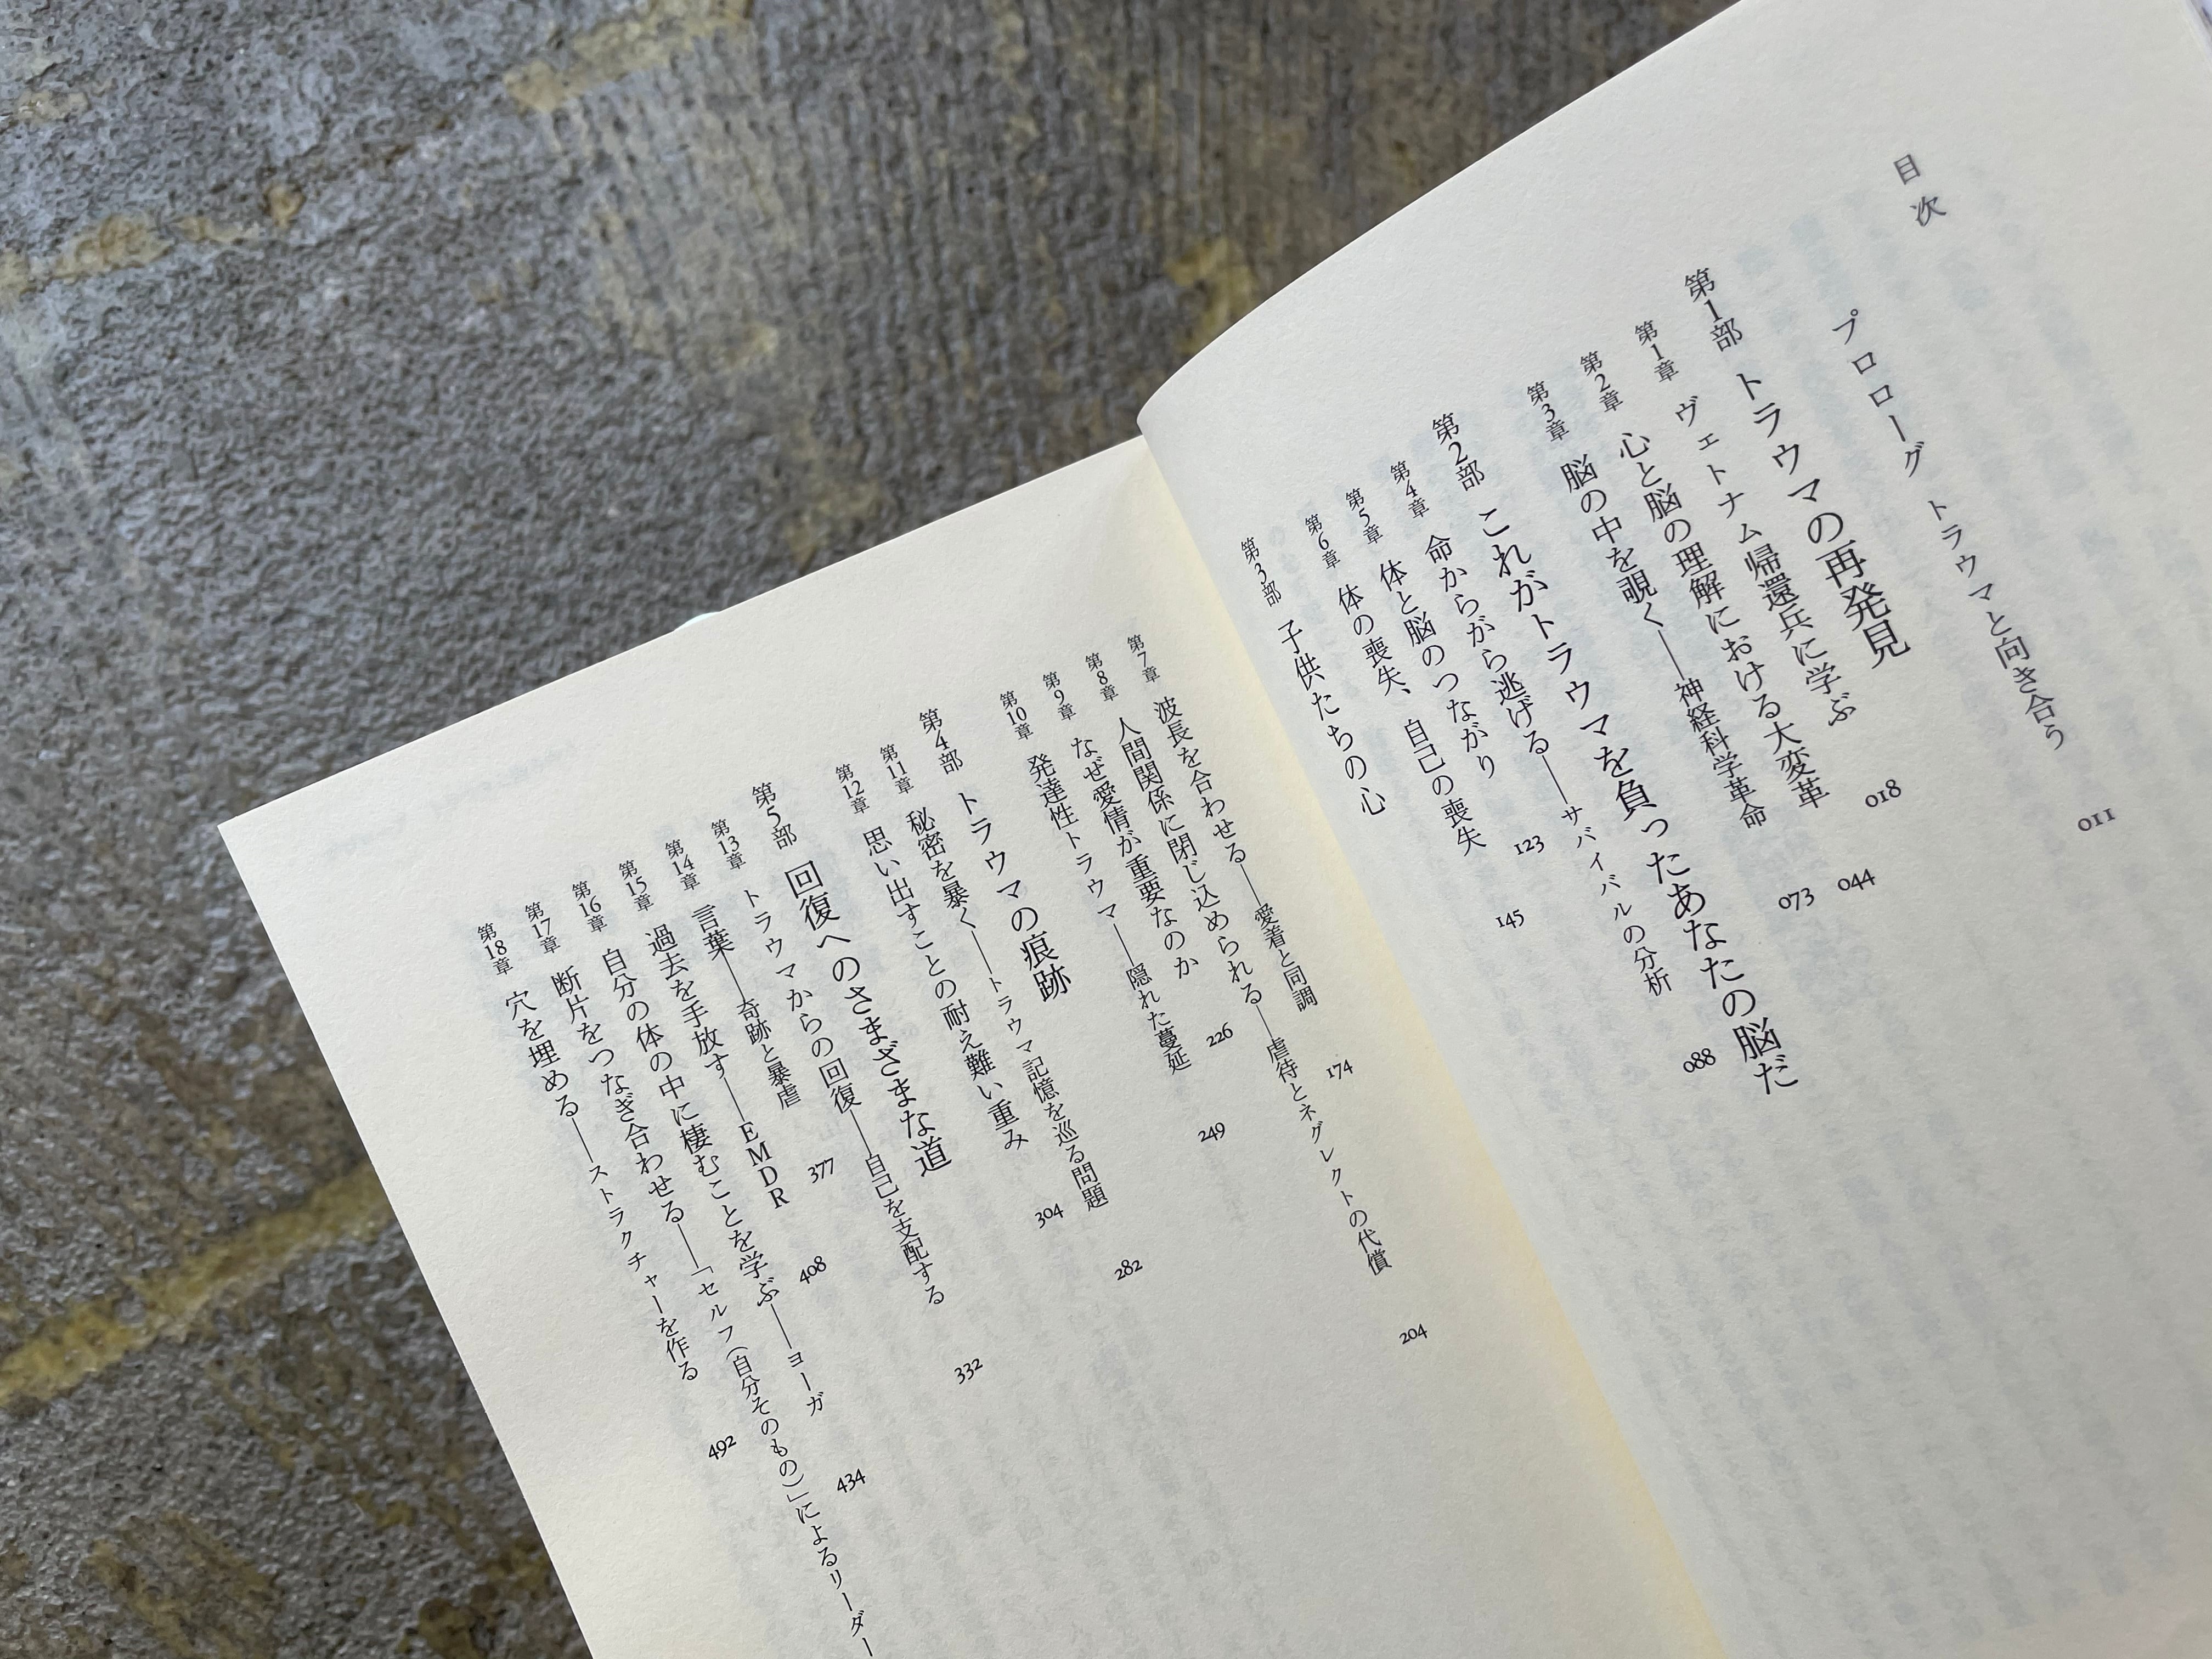 目次
プロローグ トラウマと向き合う 011
第1部 トラウマの再発見
第1章 ヴェトナム帰還兵に学ぶ 018
第2章 心と脳の理解における大変革 044
第3章 脳の中を覗く――神経科学革命 073
第2部 これがトラウマを負ったあなたの脳だ
第4章 命からがら逃げる――サバイバルの分析 088
第5章 体と脳のつながり 123
第6章 体の喪失、自己の喪失 145
第3部 子供たちの心
第7章 波長を合わせる――愛着と同調 174
第8章 人間関係に閉じ込められる――虐待とネグレクトの代償 204
第9章 なぜ愛情が重要なのか 226
第10章 発達性トラウマ――隠れた蔓延 249
第4部 トラウマの痕跡
第11章 秘密を暴く――トラウマ記憶を巡る問題 282
第12章 思い出すことの耐え難い重み 304
第5部 回復へのさまざまな道
第13章 トラウマからの回復――自己を支配する 332
第14章 言葉――奇跡と暴虐 377
第15章 過去を手放す――EMDR 408
第16章 自分の体の中に棲むことを学ぶ――ヨーガ 434
第17章 断片をつなぎ合わせる――「セルフ（自分そのもの）」によるリーダー
第18章 穴を埋める――ストラクチャーを作る 492